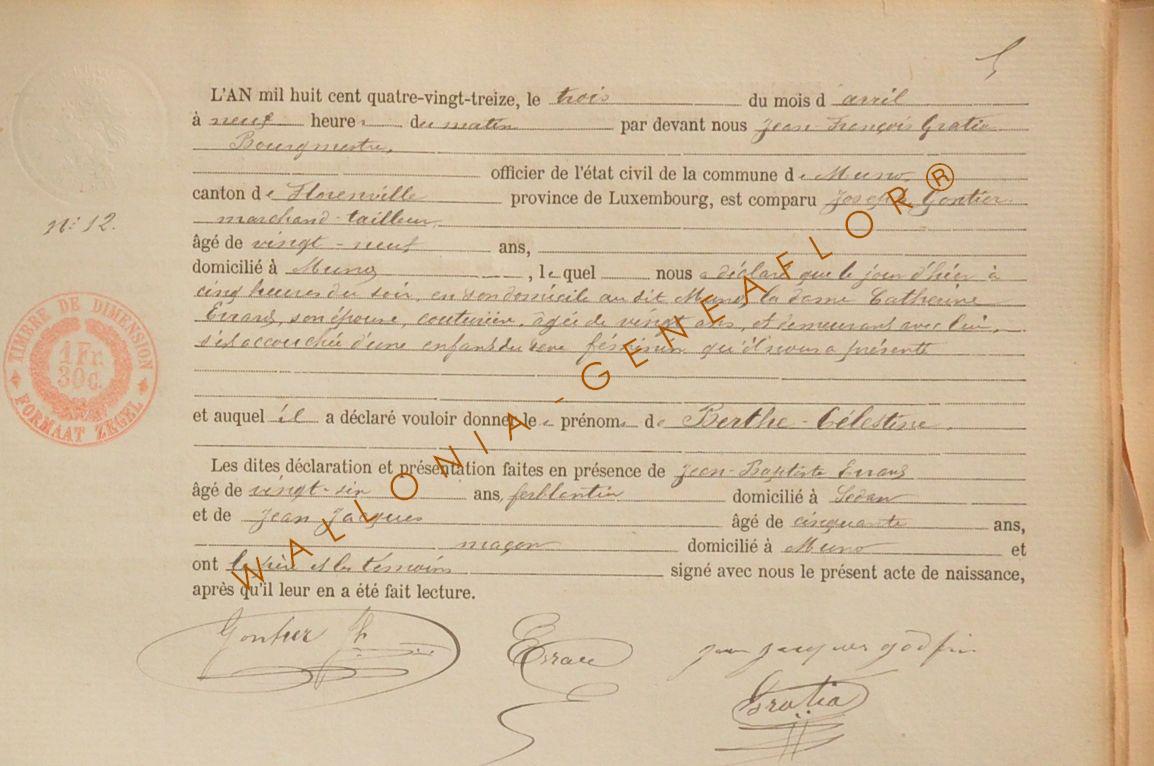 L'AN mil huit cent quatre-vingt-treize, le trois du mois d avril
à neuf heures du matin par devant nous Jean-François Gratia
Bourgmestre,
officier de l'état civil de la commune de Muno,
canton de Florenville province de Luxembourg, est comparu Joseph Gontier
marchand-tailleur,
n: 12.
âgé de vingt-neuf ans,
domicilié à Muno, lequel nous a déclaré que le jour d'hier à
cinq heures du soir, en son domicile au dit Muno, la dame Catherine
son épouse, couturière, âgée de vingt ans, et demeurant avec lui,
s'est accouchée d'une enfant du sexe féminin qu'il nous a présenté
TIMBRE DE DIMENSION
1 Fr.
30c.
FORMAAT ZEGEL
et auquel il a déclaré vouloir donner le prénom de Berthe-Célestine.
Les dites déclaration et présentation faites en présence de Jean-Baptiste
âgé de vingt-six ans, ferblantier domicilié à Sedan
et de Jean Jacques âgé de cinquante ans,
maçon domicilié à Muno et
ont le père et les témoins signé avec nous le présent acte de naissance,
après qu'il leur en a été fait lecture.
Gontier
jean jacques godfrin
Gratia
WALLONIA-GENEAFLOR®